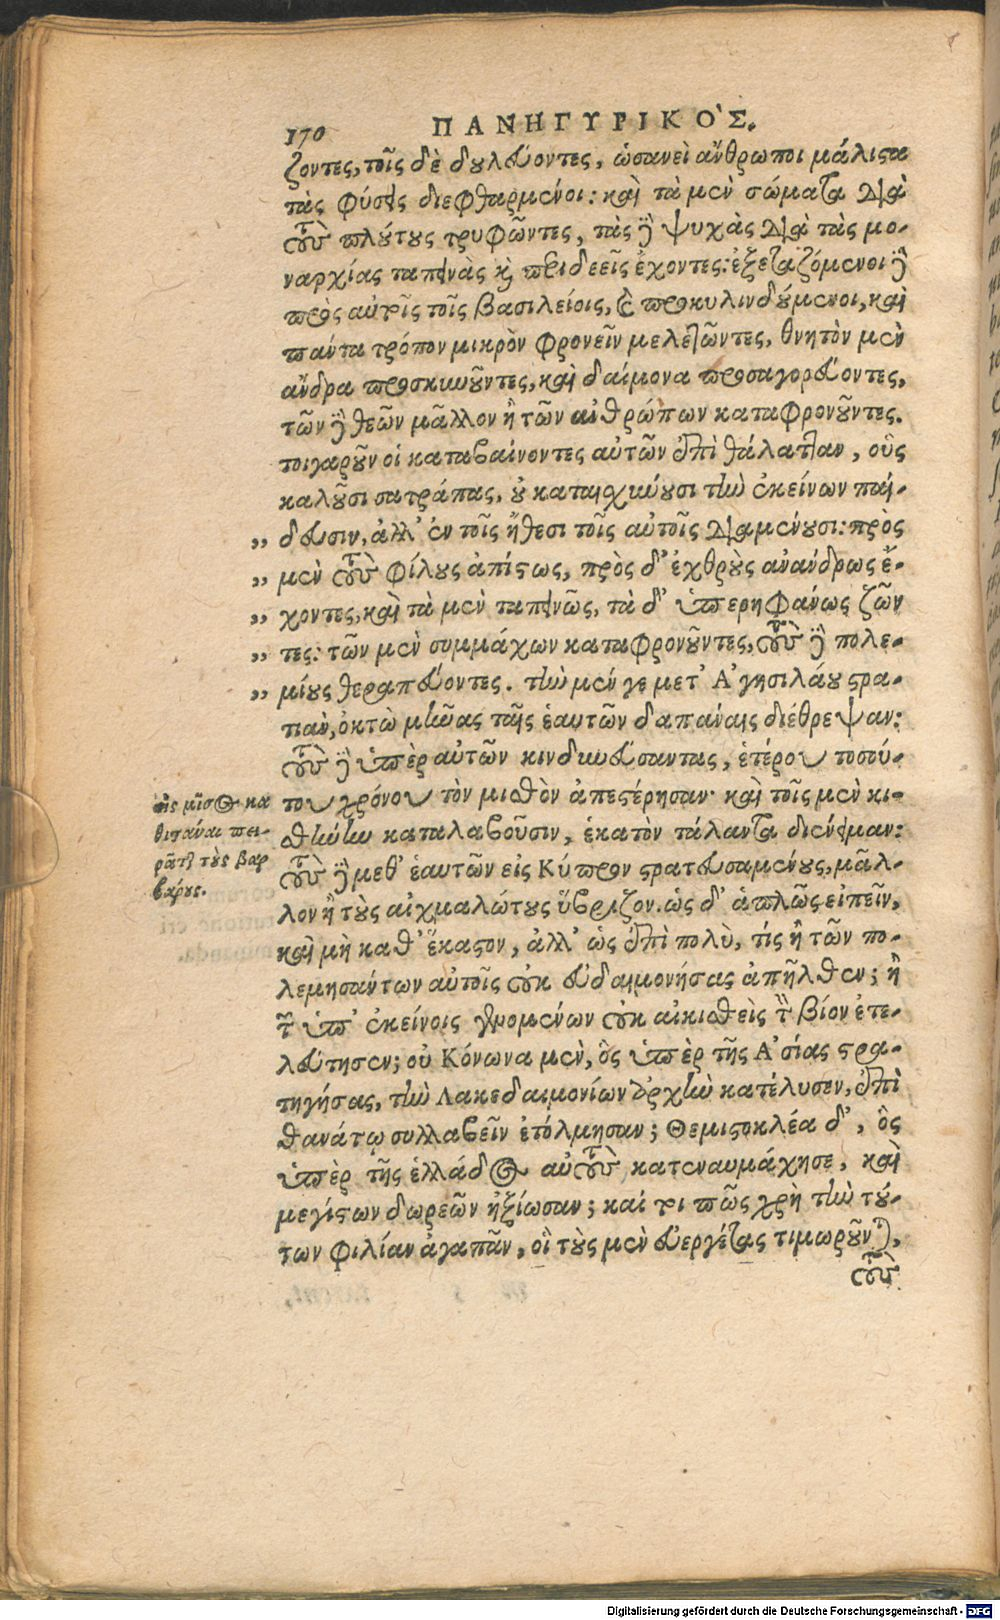 170 ΠΑΝΗΓΥΡΙΚΟ'Σ.
ζοντες, τοῖς δὲ δουλεύοντες, ὡσανεὶ ἄνθρωποι μάλιστα
τὰς φύσεις διεφθαρμένοι: καὶ τὰ μὲν σώματα διὰ
τοὺς πλούτους τρυφῶντες, τὰς δὲ ψυχὰς διὰ τὰς μο-
ναρχίας ταπεινὰς καὶ περιδεεῖς ἔχοντες: ἐξεταζόμενοι δὲ
πρὸς αὐτοῖς τοῖς βασιλείοις, καὶ προκυλινδούμενοι, καὶ
πάντα τρόπον μικρὸν φρονεῖν μελετῶντες, θνητὸν μὲν
ἄνδρα προσκυνοῦντες, καὶ δαίμονα προσαγορεύοντες,
τῶν δὲ θεῶν μᾶλλον ἢ τῶν ανθρώπων καταφρονοῦντες.
τοιγαροῦν οἱ καταβαίνοντες αὐτῶν ἐπὶ θάλατταν, οὓς
καλοῦσι σατράπας, οὐ καταισχύνουσι τὴν ἐκείνων παί-
,, δευσιν, ἀλλ' ἐν τοῖς ἤθεσι τοῖς αὐτοῖς διαμένουσι: πρὸς
,, μὲν τοὺς φίλους ἀπίστως, πρὸς δ' ἐχθροὺς ανάνδρως ἔ-
,, χοντες, καὶ τὰ μὲν ταπεινῶς, τὰ δ' ὑπερηφάνως ζῶν
,, τες: τῶν μὲν συμμάχων καταφρονοῦντες, τοὺς δὲ πολε-
,, μίους θεραπεύοντες. τὴν μέν γε μετ' Α'γησιλάου στρα-
τιαὶν, ὀκτὼ μῆνας ταῖς ἑαυτῶν δαπάναις διέθρεψαν:
τοὺς δὲ ὑπὲρ αὐτῶν κινδυνεύσαντας, ἑτέρου τοσού-
του χρόνου τὸν μισθὸν ἀπεστέρησαν· καὶ τοῖς μὲν κι-
σθήνην καταλαβοῦσιν, ἑκατὸν τάλαντα διένειμαν:
τοὺς δὲ μεθ' ἑαυτῶν εἰς Κύπρον στρατευσαμένους, μᾶλ-
λον ἢ τοὺς αἰχμαλώτους ὕβριζον. ὡς δ' ἁπλῶς εἰπεῖν,
καὶ μὴ καθ' ἕκαστον, ἀλλ' ὡς ἐπὶ πολὺ, τίς ἢ τῶν πο-
λεμησάντων αὐτοῖς οὐκ εὐδαιμονήσας ἀπῆλθεν; ἢ
τῶν ὑπ' ἐκείνοις γενομένων οὐκ αἰκισθεὶς τὸν βίον ἐτε-
λεύτησεν; οὐ Κόνωνα μὲν, ὃς ὑπὲρ τῆς Α'σίας στρα-
τηγήσας, τὴν Λακεδαιμονίων ἀρχὴν κατέλυσεν, ἐπὶ
θανάτῳ συλλαβεῖν ἐτόλμησαν; Θεμιστοκλέα δ', ὃς
ὑπὲρ τῆς ἑλλάδος αὐτοὺς κατεναυμάχησε, καὶ
μεγίστων δωρεῶν ἠξίωσαν; καί τοι πῶς χρὴ τὴν τού-
των φιλίαν ἀγαπᾶν, οἳ τοὺς μὲν εὐεργέτας τιμωροῦνται,
τοὺς
τῆς μῖσος κα
θιστάναι πει-
ρᾶται τοὺς βαρ
βάρους.
Digitalisierung gefördert durch die Deutsche Forschungsgemeinschaft - DFG